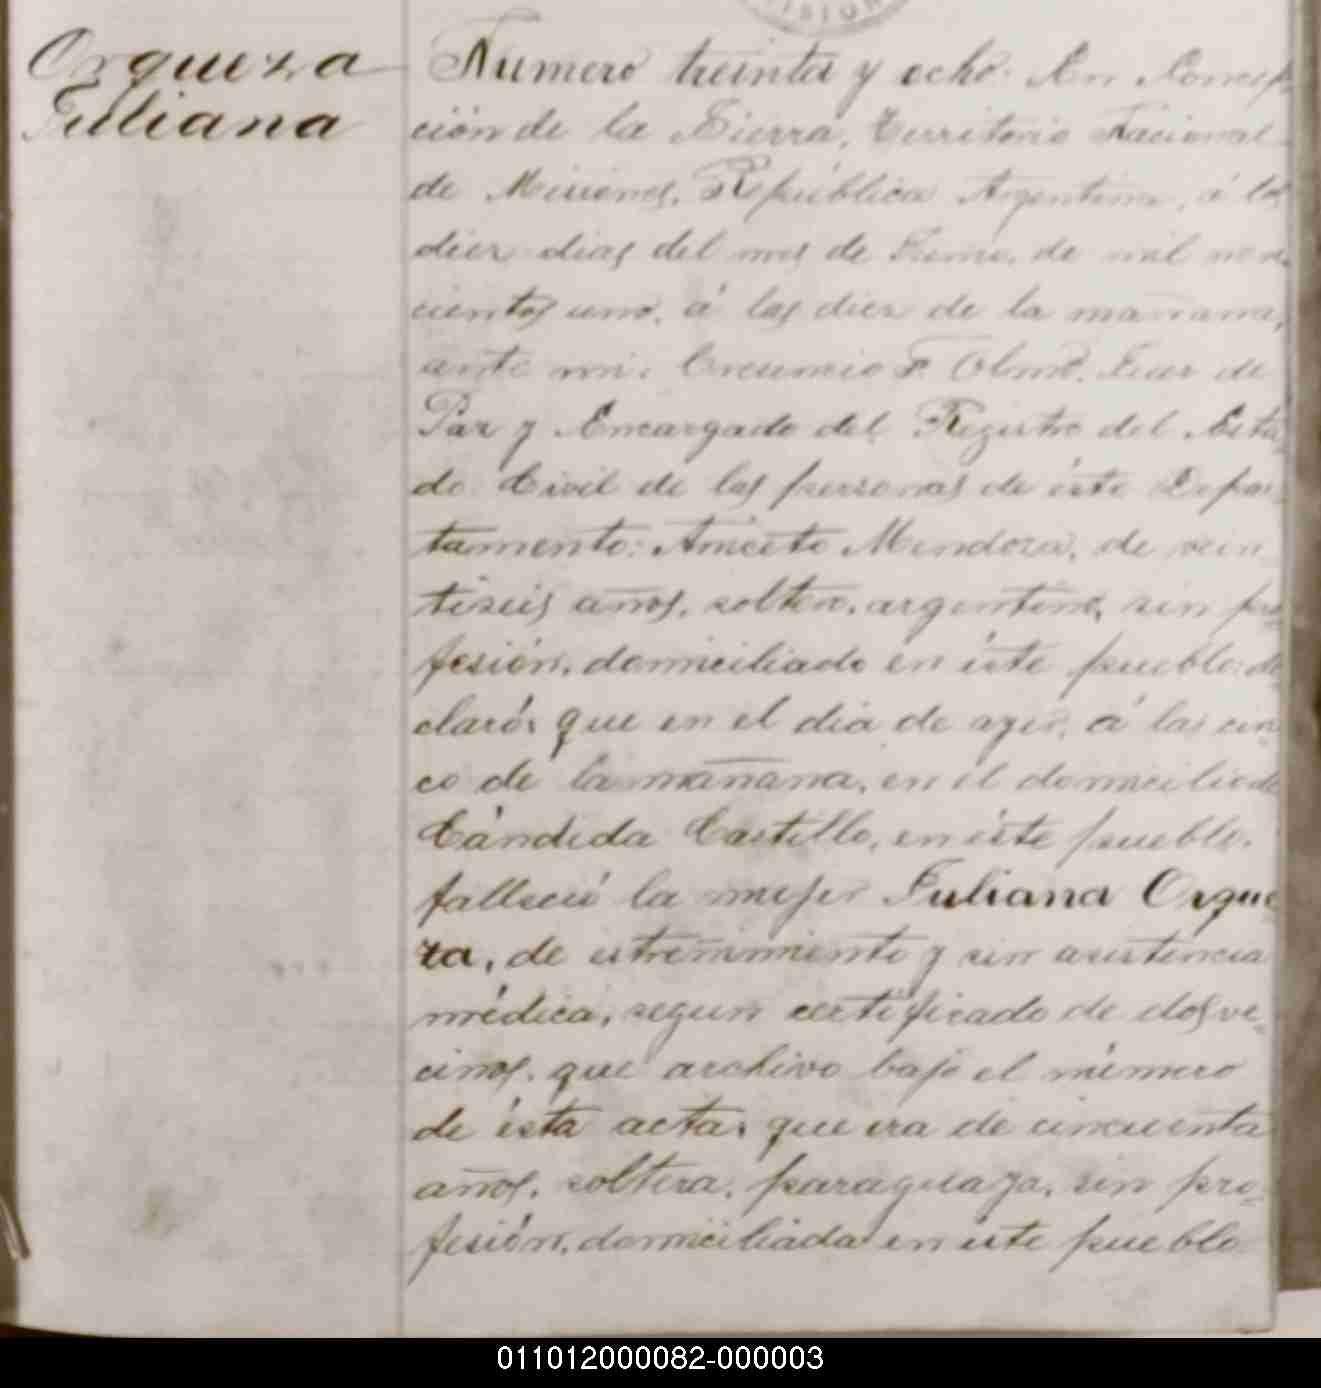 Orqueza
Juliana
Numero treinta y ocho. En Concep-
ción de la Sierra, Territorio Nacional
de Misiones, República Argentina, á los
diez dias del mes de Junio, de mil nove-
cientos uno, á las diez de la mañana,
ante mi: F. Olmo. Juez de
Paz y Encargado del Registro del Esta-
do Civil de las personas de éste Depar-
tamento: Aniceto Mendoza, de vein
tiseis años, soltero, argentino, sin pro-
fesión, domiciliado en éste pueblo: de
claró: que en el dia de ayer, á las cin-
co de la mañana, en el domicilio de
Cándida Castillo, en éste pueblo,
falleció la mujer Juliana Orque
za, de estreñimiento y sin asistencia
médica, segun certificado de dos ve-
cinos, que archivo bajo el número
de ésta acta; que era de cincuenta
años, soltera, paraguaya, sin pro-
fesión, domiciliada en éste pueblo
VISION
011012000082-000003